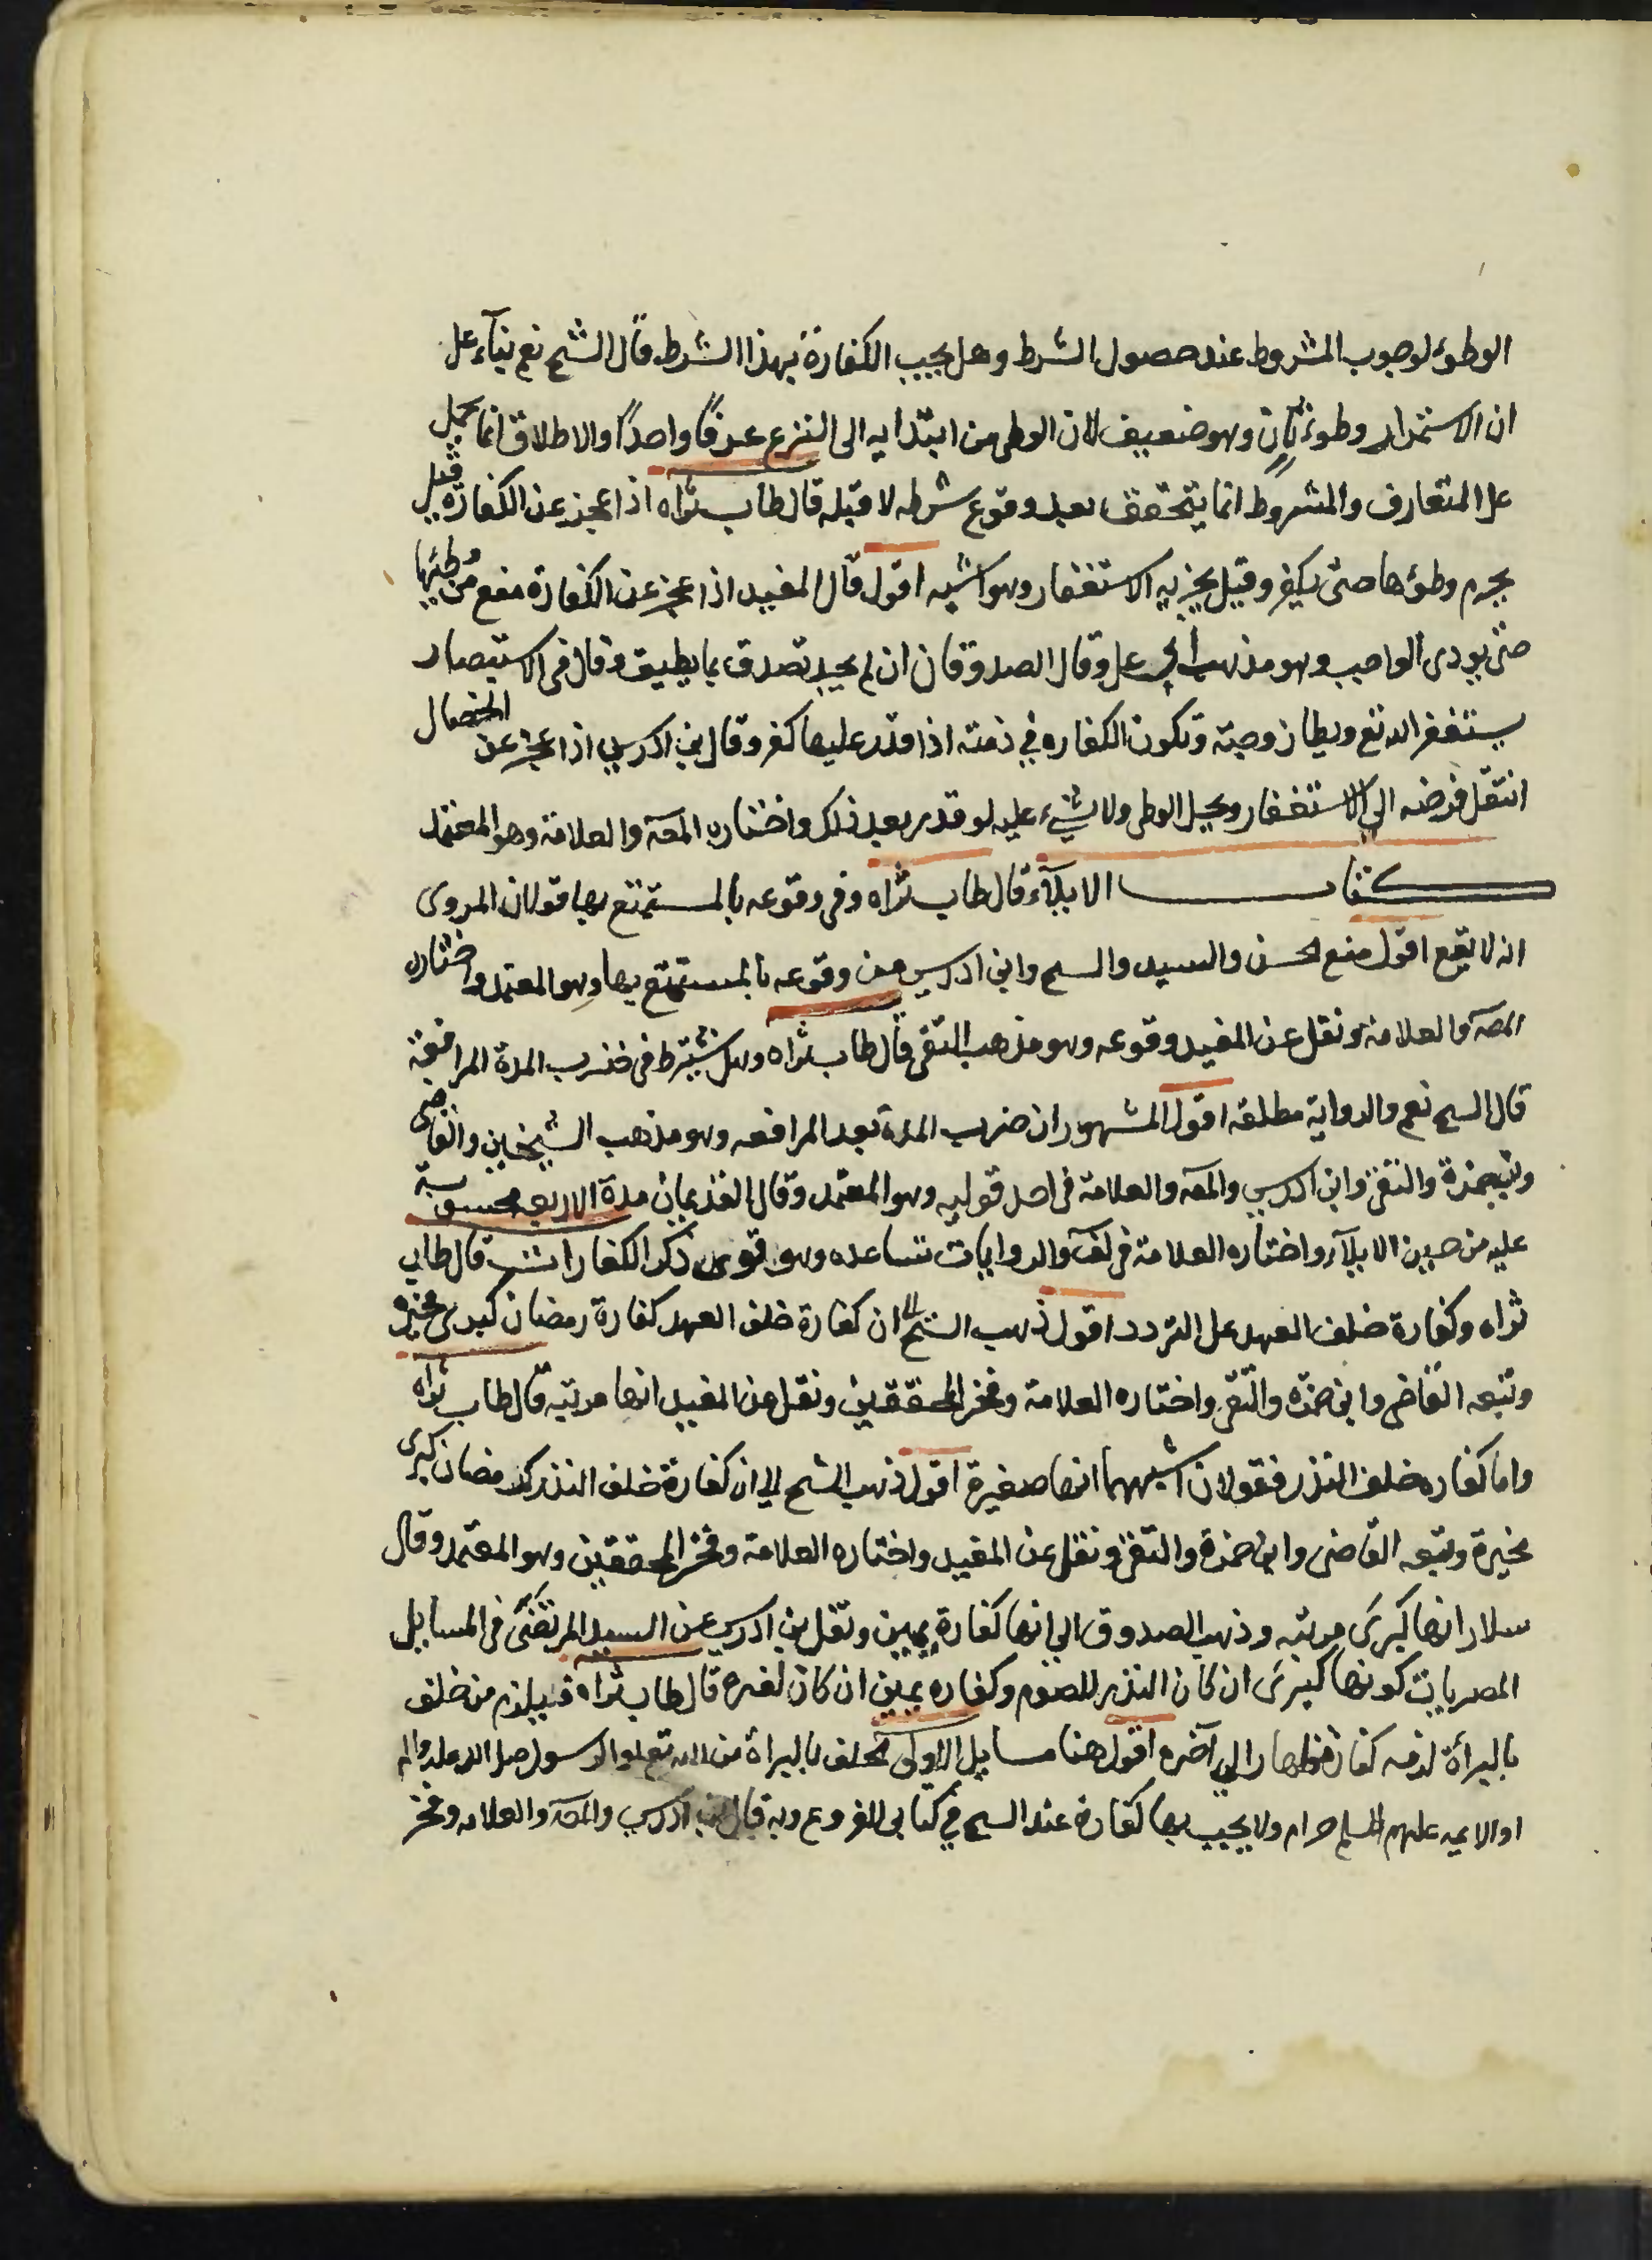 الوطوء لوجوب المشروط عند حصول الشرط وهل يجب الكفارة بهذا الشرط قال الشيخ نعم بناء على
ان الاستمرار وطوء ثان وهو ضعيف لان الوطى من ابتدايه الى النزع عرفا واحدا والاطلاق انما يحمل
على المتعارف والمشروط انما يتحقق بعد وقوع شرطه لا قبله قال طاب ثراه اذا عجز عن الكفارة قيل
يحرم وطوءها حتى يكفر وقيل يجزيه الاستغفار وهو اشبه اقول قال المفيد اذا عجز عن الكفارة منع من وطئها
حتى يودى الواجب وهو مذهب ابى على وقال الصدوقان ان لم يجد تصدق بما يطيق وقال فى الاستبصار
يستغفر الله تع ويطا زوجته وتكون الكفاره في ذمته اذا قدر عليها كفر وقال بن ادريس اذا عجز عن الخصال
انتقل فرضه الى الاستغفار ويحل الوطى ولا شيء عليه لو قدر بعد ذلك واختاره المصة والعلامة وهو المعتمد
كتاب الايلاء قال طاب ثراه وفى وقوعه بالمستمتع بها قولان المروى
انه لا يقع اقول منع الحسن والسيد والسح وابن ادريس من وقوعه بالمستمتع بها وهو المعتمد واختاره
المصة والعلامة ونقل عن المفيد وقوعه وهو مذهب التقى قال طاب ثراه وهل يشترط فى ضرب المدة المرافعة
قال السح نعم والرواية مطلقه اقول المشهور ان ضرب المدة بعد المرافعه وهو مذهب الشيخين والقاضى
وبنحمزة والتقى وابن ادريس والمصة والعلامة فى احد قوليه وهو المعتمد وقال القديمان مدة الاربعه محسوبة
عليه من حين الايلاء واختاره العلامة فى لف والروايات تساعده وهو قوى ذكر الكفارات قال طاب
ثراه وكفارة خلف العهد على التردد اقول ذهب الشيخ الى ان كفارة خلف العهد كفارة رمضان كبرى مخيرة
وتبعه القاضى وابن حمزه والتقى واختاره العلامة وفخر المحققين ونقل عن المفيد انها مرتبه قال طاب ثراه
واما كفاره خلف النذر فقولان اشبههما انها صغيرة اقول ذهب الشيخ الى ان كفارة خلف النذر كرمضان كبرى
مخيرة وتبعه القاضى وابن حمزة والتقى ونقل عن المفيد واختاره العلامة وفخر المحققين وهو المعتمد وقال
سلار انها كبرى مرتبه وذهب الصدوق الى انها كفارة يمين ونقل بن ادريس عن السيد المرتضى فى المسايل
المصريات كونها كبرى ان كان النذر للصوم وكفاره يمين ان كان لغيره قال طاب ثراه فيما يلزم من حلف
بالبراة لزمه كفارة ظهار الى اخره اقول هنا مسايل الاولى الحلف بالبراة من الله تع او الرسول صلى الله عليه واله
او الايمه عليهم السلم حرام ولا يجب بها كفارة عند السح في كتابى الفروع وبه قال ابن ادريس والمصة والعلامه وفخر